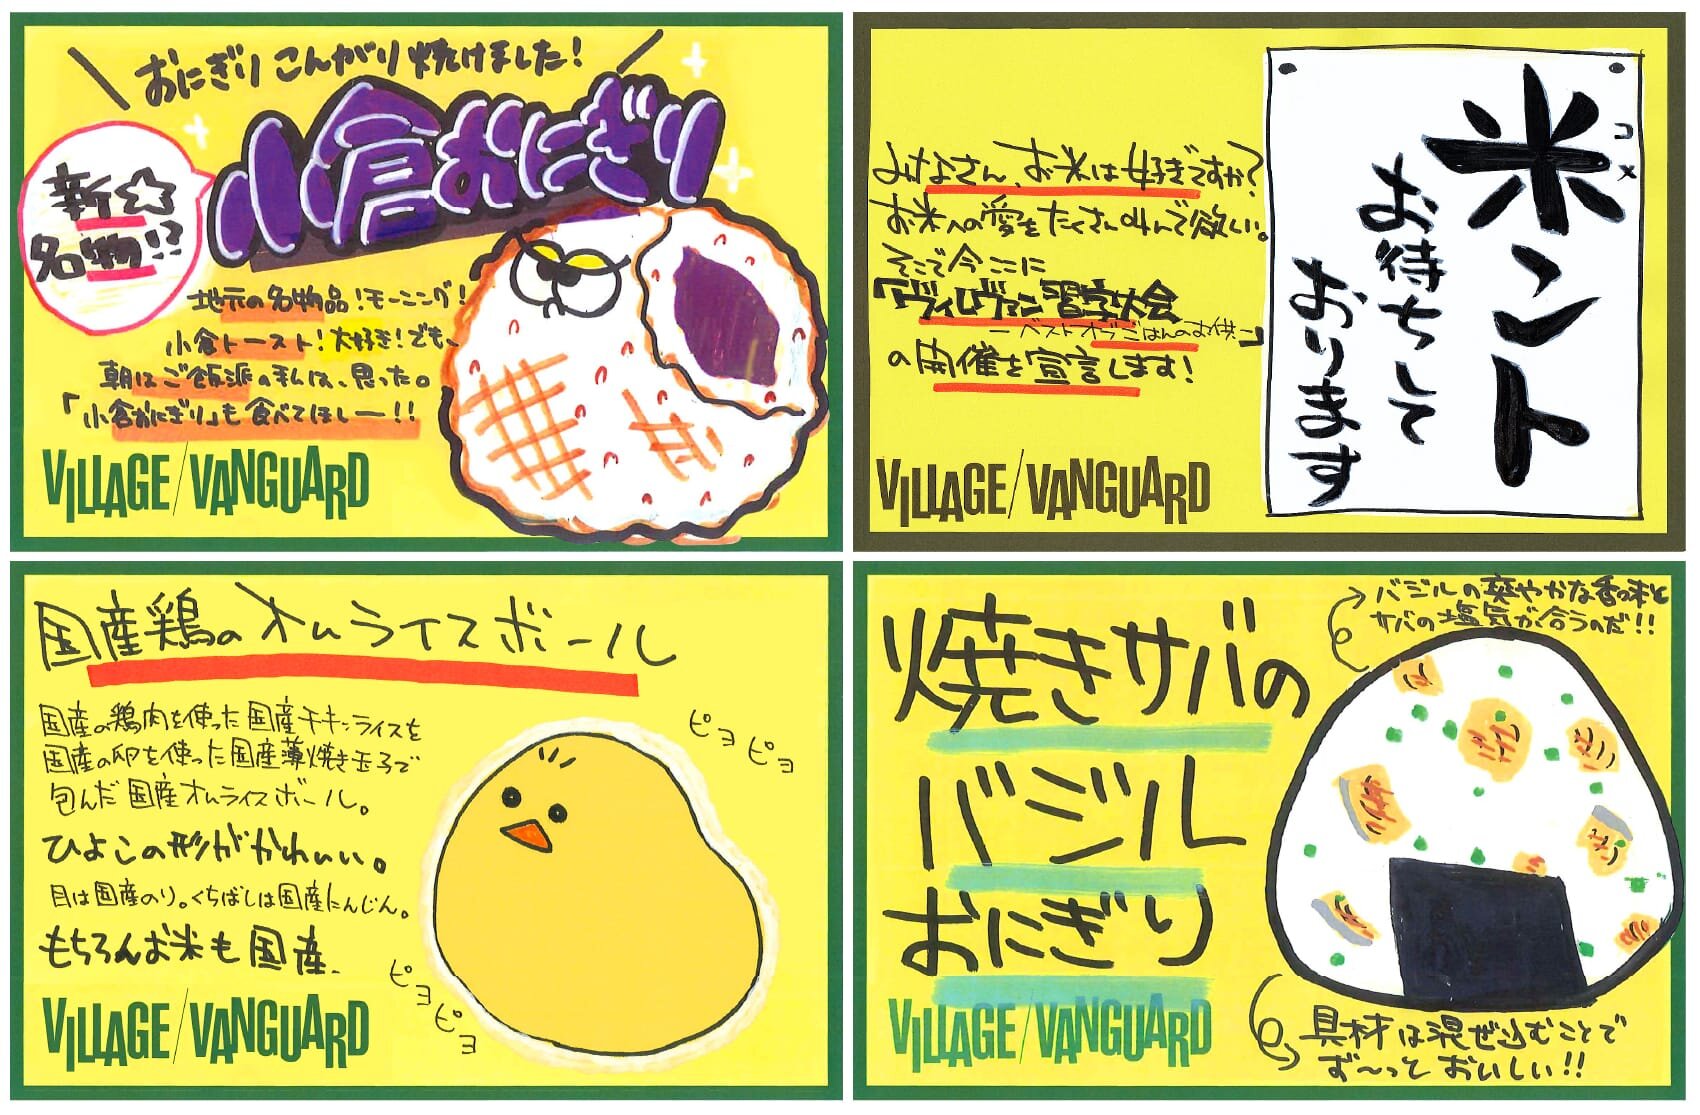 おにぎりこんがり焼けました!
小倉おにぎり
新☆
名物!?
地元の名物品!モーニング!
小倉トースト!大好き!でも、
朝はご飯派の私は、思った。
「小倉おにぎり」も食べてほしー!!
VILLAGE/VANGUARD
みなさん、お米は好きですか?
お米への愛をたくさん叫んで欲しい。
そこで今ここに
「ヴィレヴァン習字大会
ーベストオブごはんのお供ー」
の開催を宣言します!
米ント
コメ
お待ちして
おります
VILLAGE/VANGUARD
国産鶏のオムライスボール
国産の鶏肉を使った国産チキンライスを
国産の卵を使った国産薄焼き玉子で
包んだ国産オムライスボール。
ひよこの形がかわいい。
目は国産のり。くちばしは国産にんじん。
もちろんお米も国産。
ピヨピヨ
ピヨピヨ
VILLAGE/VANGUARD
バジルの爽やかな香味と
サバの塩気が合うのだ!!
焼きサバの
バジル
おにぎり
具材は混ぜ込むことで
ず〜っとおいしい!!
VILLAGE/VANGUARD